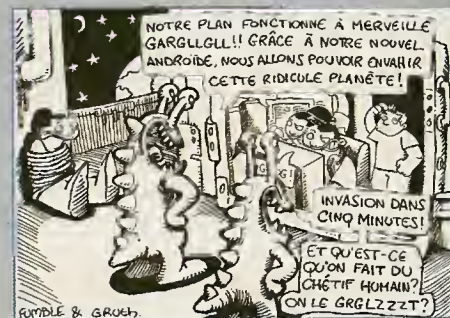 NOTRE PLAN FONCTIONNE À MERVEILLE
GARGLLGLL!! GRÂCE À NOTRE NOUVEL
ANDROÏDE, NOUS ALLONS POUVOIR ENVAHIR
CETTE RIDICULE PLANÈTE!
INVASION DANS
CINQ MINUTES!
ET QU'EST-CE
QU'ON FAIT DU
CHÉTIF HUMAIN?
ON LE GRGLZZZT?
FUMBLE & GRUEH.